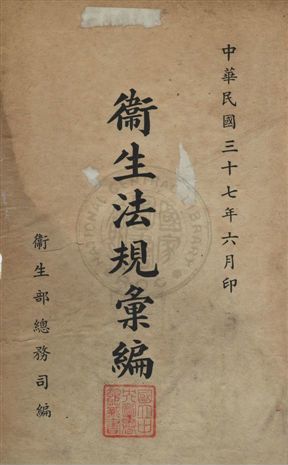 中華民國三十七年六月印
衞生法規彙編
衞生部總務司編